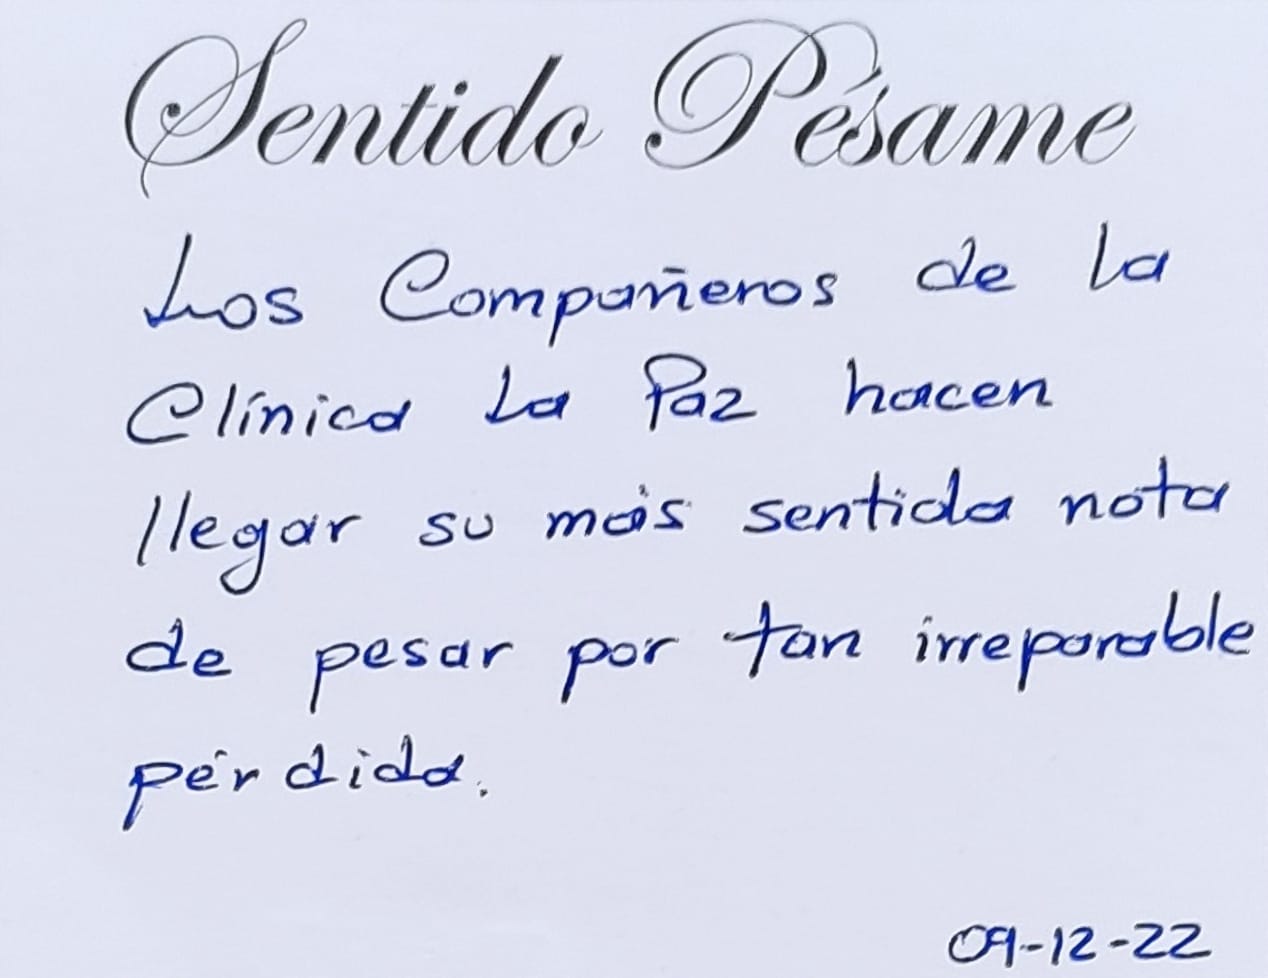 Sentido Pésame
Los Compañeros de la
Clínica La Paz hacen
llegar su más sentida nota
de pesar por tan irreparable
pérdida.
09-12-22